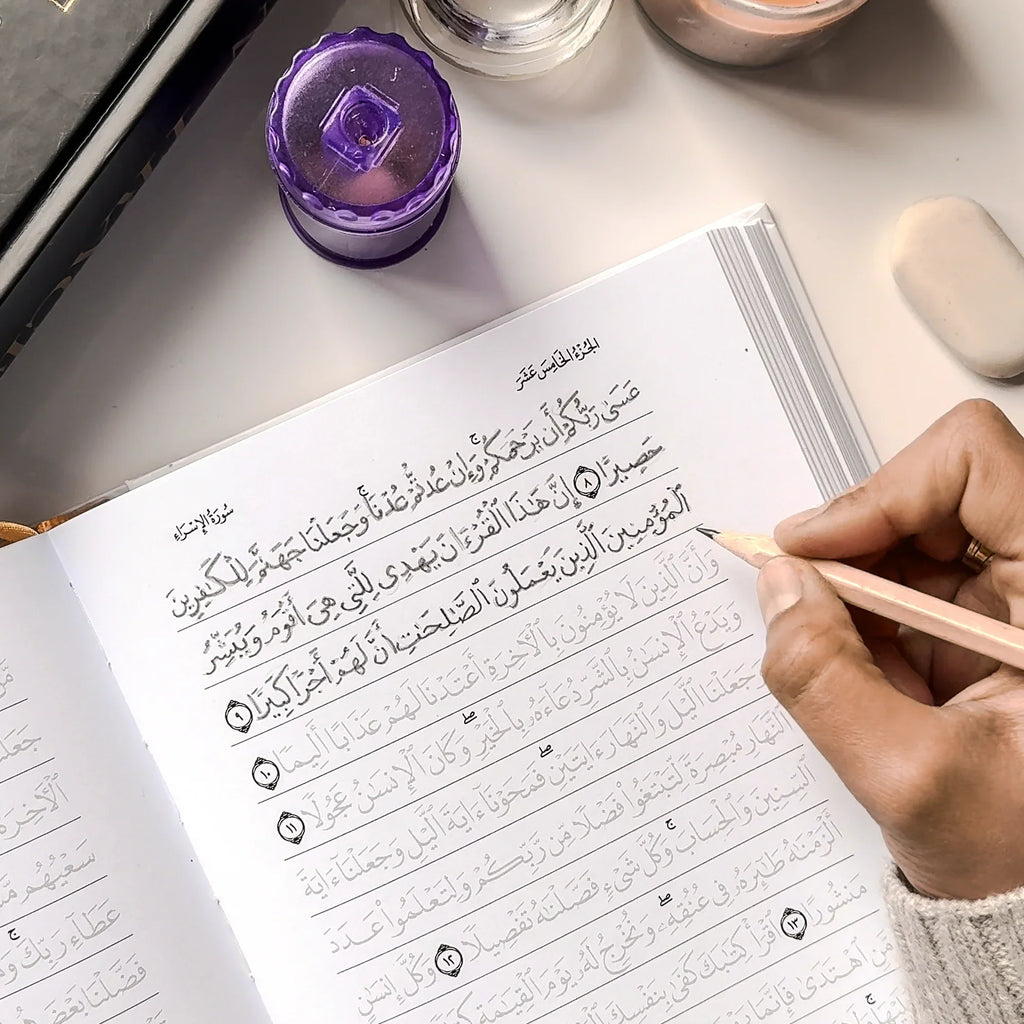 الجُزْءُ الخَامِسَ عَشَرَ
سُورَةُ الإِسْرَاءِ
عَسَىٰ رَبُّكُمْ أَن يَرْحَمَكُمْ ۚ وَإِنْ عُدتُّمْ عُدْنَا ۚ وَجَعَلْنَا جَهَنَّمَ لِلْكَٰفِرِينَ
حَصِيرًا ٨ إِنَّ هَٰذَا ٱلْقُرْءَانَ يَهْدِى لِلَّتِى هِىَ أَقْوَمُ وَيُبَشِّرُ
ٱلْمُؤْمِنِينَ ٱلَّذِينَ يَعْمَلُونَ ٱلصَّٰلِحَٰتِ أَنَّ لَهُمْ أَجْرًا كَبِيرًا ٩
وَأَنَّ ٱلَّذِينَ لَا يُؤْمِنُونَ بِٱلْأَخِرَةِ أَعْتَدْنَا لَهُمْ عَذَابًا أَلِيمًا ١٠
وَيَدْعُ ٱلْإِنسَٰنُ بِٱلشَّرِّ دُعَآءَهُۥ بِٱلْخَيْرِ ۖ وَكَانَ ٱلْإِنسَٰنُ عَجُولًا ١١
جَعَلْنَا ٱلَّيْلَ وَٱلنَّهَارَ ءَايَتَيْنِ ۖ فَمَحَوْنَآ ءَايَةَ ٱلَّيْلِ وَجَعَلْنَآ ءَايَةَ
ٱلنَّهَارِ مُبْصِرَةً لِّتَبْتَغُوا۟ فَضْلًا مِّن رَّبِّكُمْ وَلِتَعْلَمُوا۟ عَدَدَ
ٱلسِّنِينَ وَٱلْحِسَابَ ۚ وَكُلَّ شَىْءٍ فَصَّلْنَٰهُ تَفْصِيلًا ١٢ وَكُلَّ إِنسَٰنٍ
أَلْزَمْنَٰهُ طَٰٓئِرَهُۥ فِى عُنُقِهِۦ ۖ وَنُخْرِجُ لَهُۥ يَوْمَ ٱلْقِيَٰمَةِ
مَنشُورًا ١٣ ٱقْرَأْ كِتَٰبَكَ كَفَىٰ بِنَفْسِكَ
مَّنِ ٱهْتَدَىٰ فَإِنَّمَا
جَعَلْنَا
ٱلْأَخِرَةَ
سَعْيُهُم
عَطَآءِ رَبِّكَ ۚ
فَضَّلْنَا